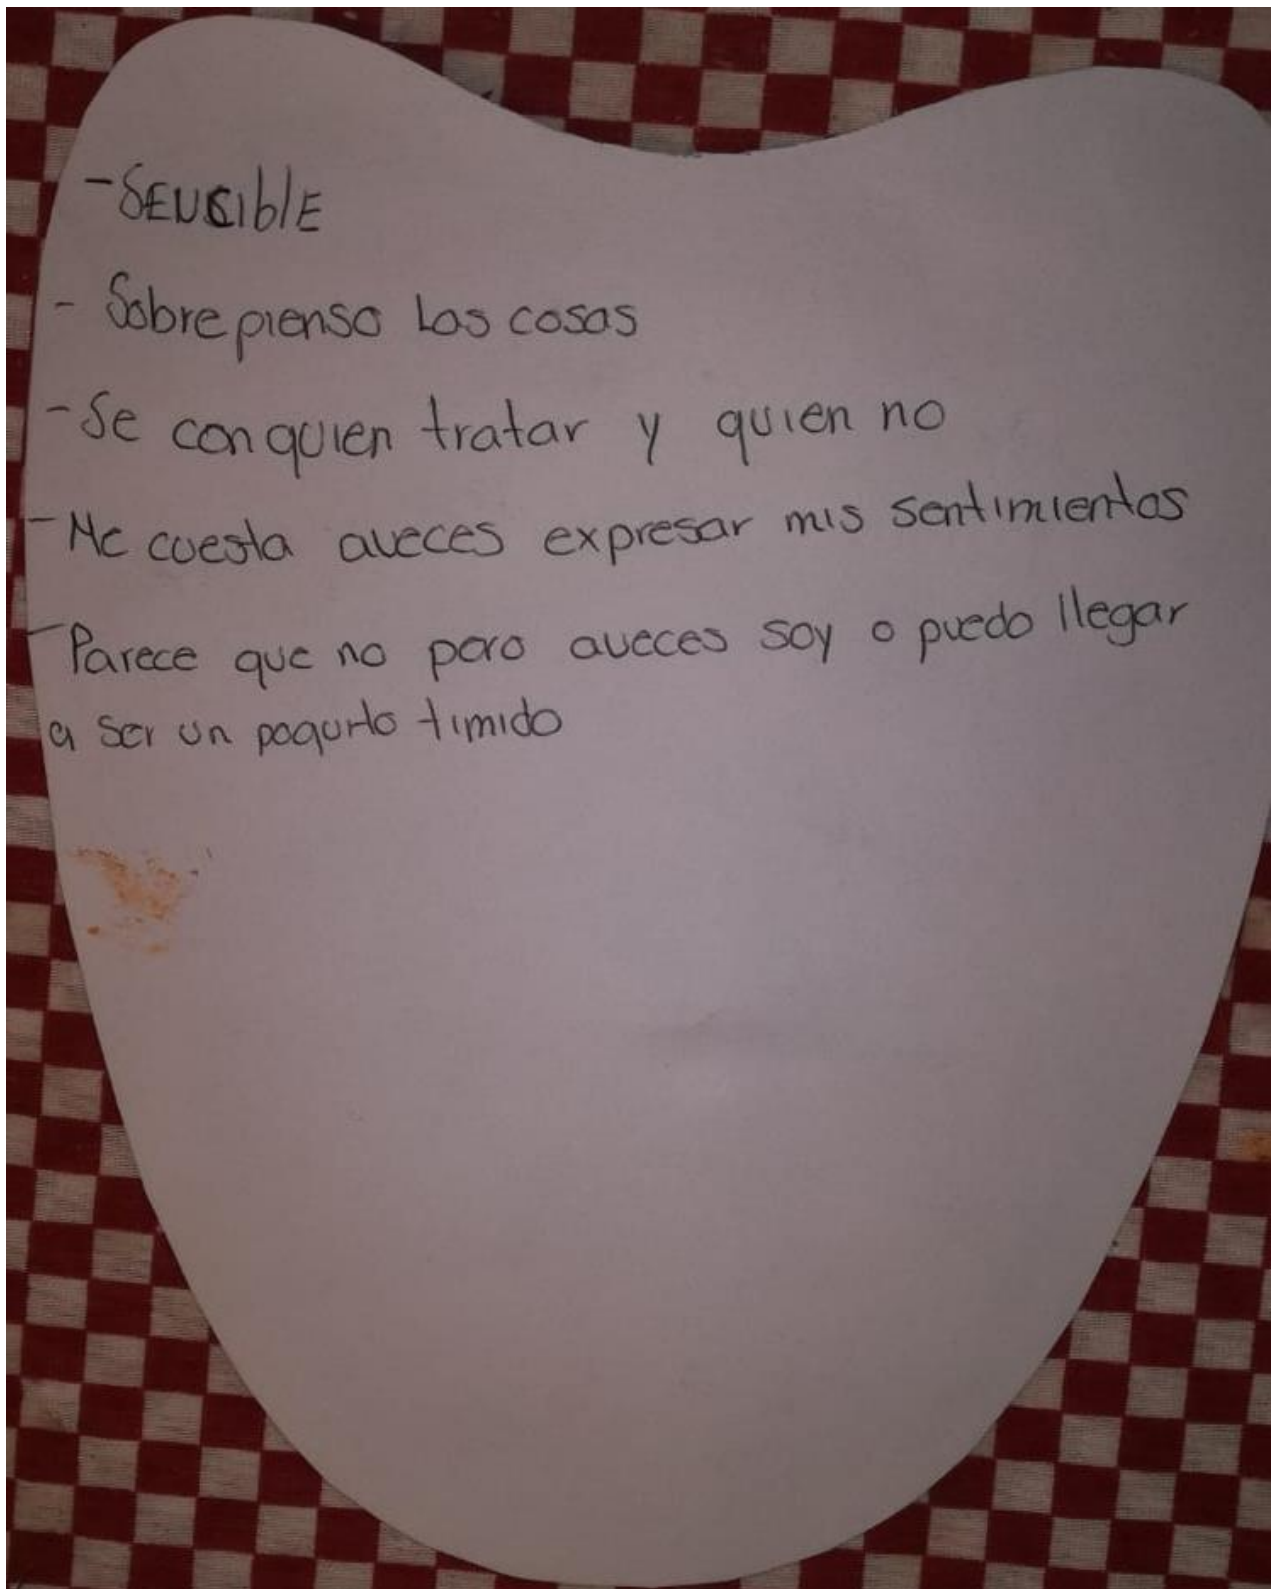 - SENCIblE
- Sobre pienso Las cosas
- Se con quien tratar y quien no
- Me cuesta aveces expresar mis sentimientos
- Parece que no pero aveces soy o puedo llegar
a ser un poquito timido